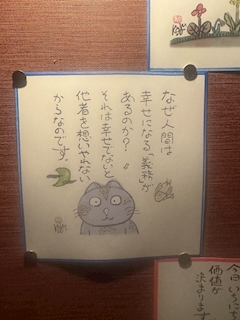 なぜ人間は
幸せになる「義務が
あるのか？。
それは幸せでないと
他者を想いやれない
からなのです。
今日いちにち
価値が
決まります